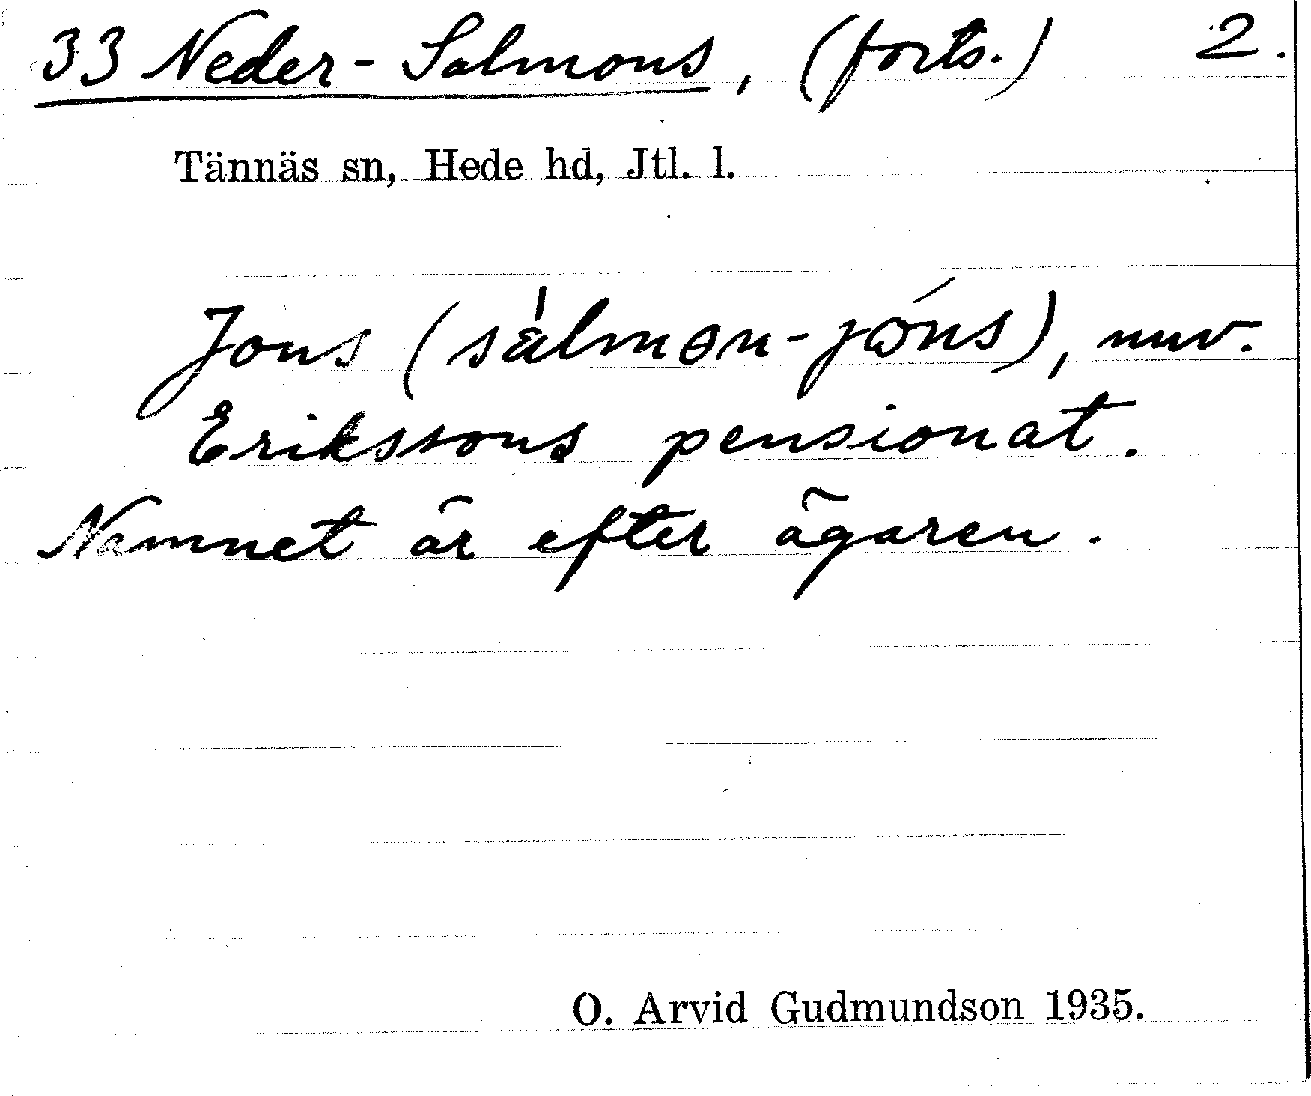 33 Neder-Salmons, (forts.) 2.
Tännäs sn, Hede hd, Jtl. l.
Jons (sálmɵn-jó̤ns), nuv.
Erikssons pensionat.
Namnet är efter ägaren.
O. Arvid Gudmundson 1935.